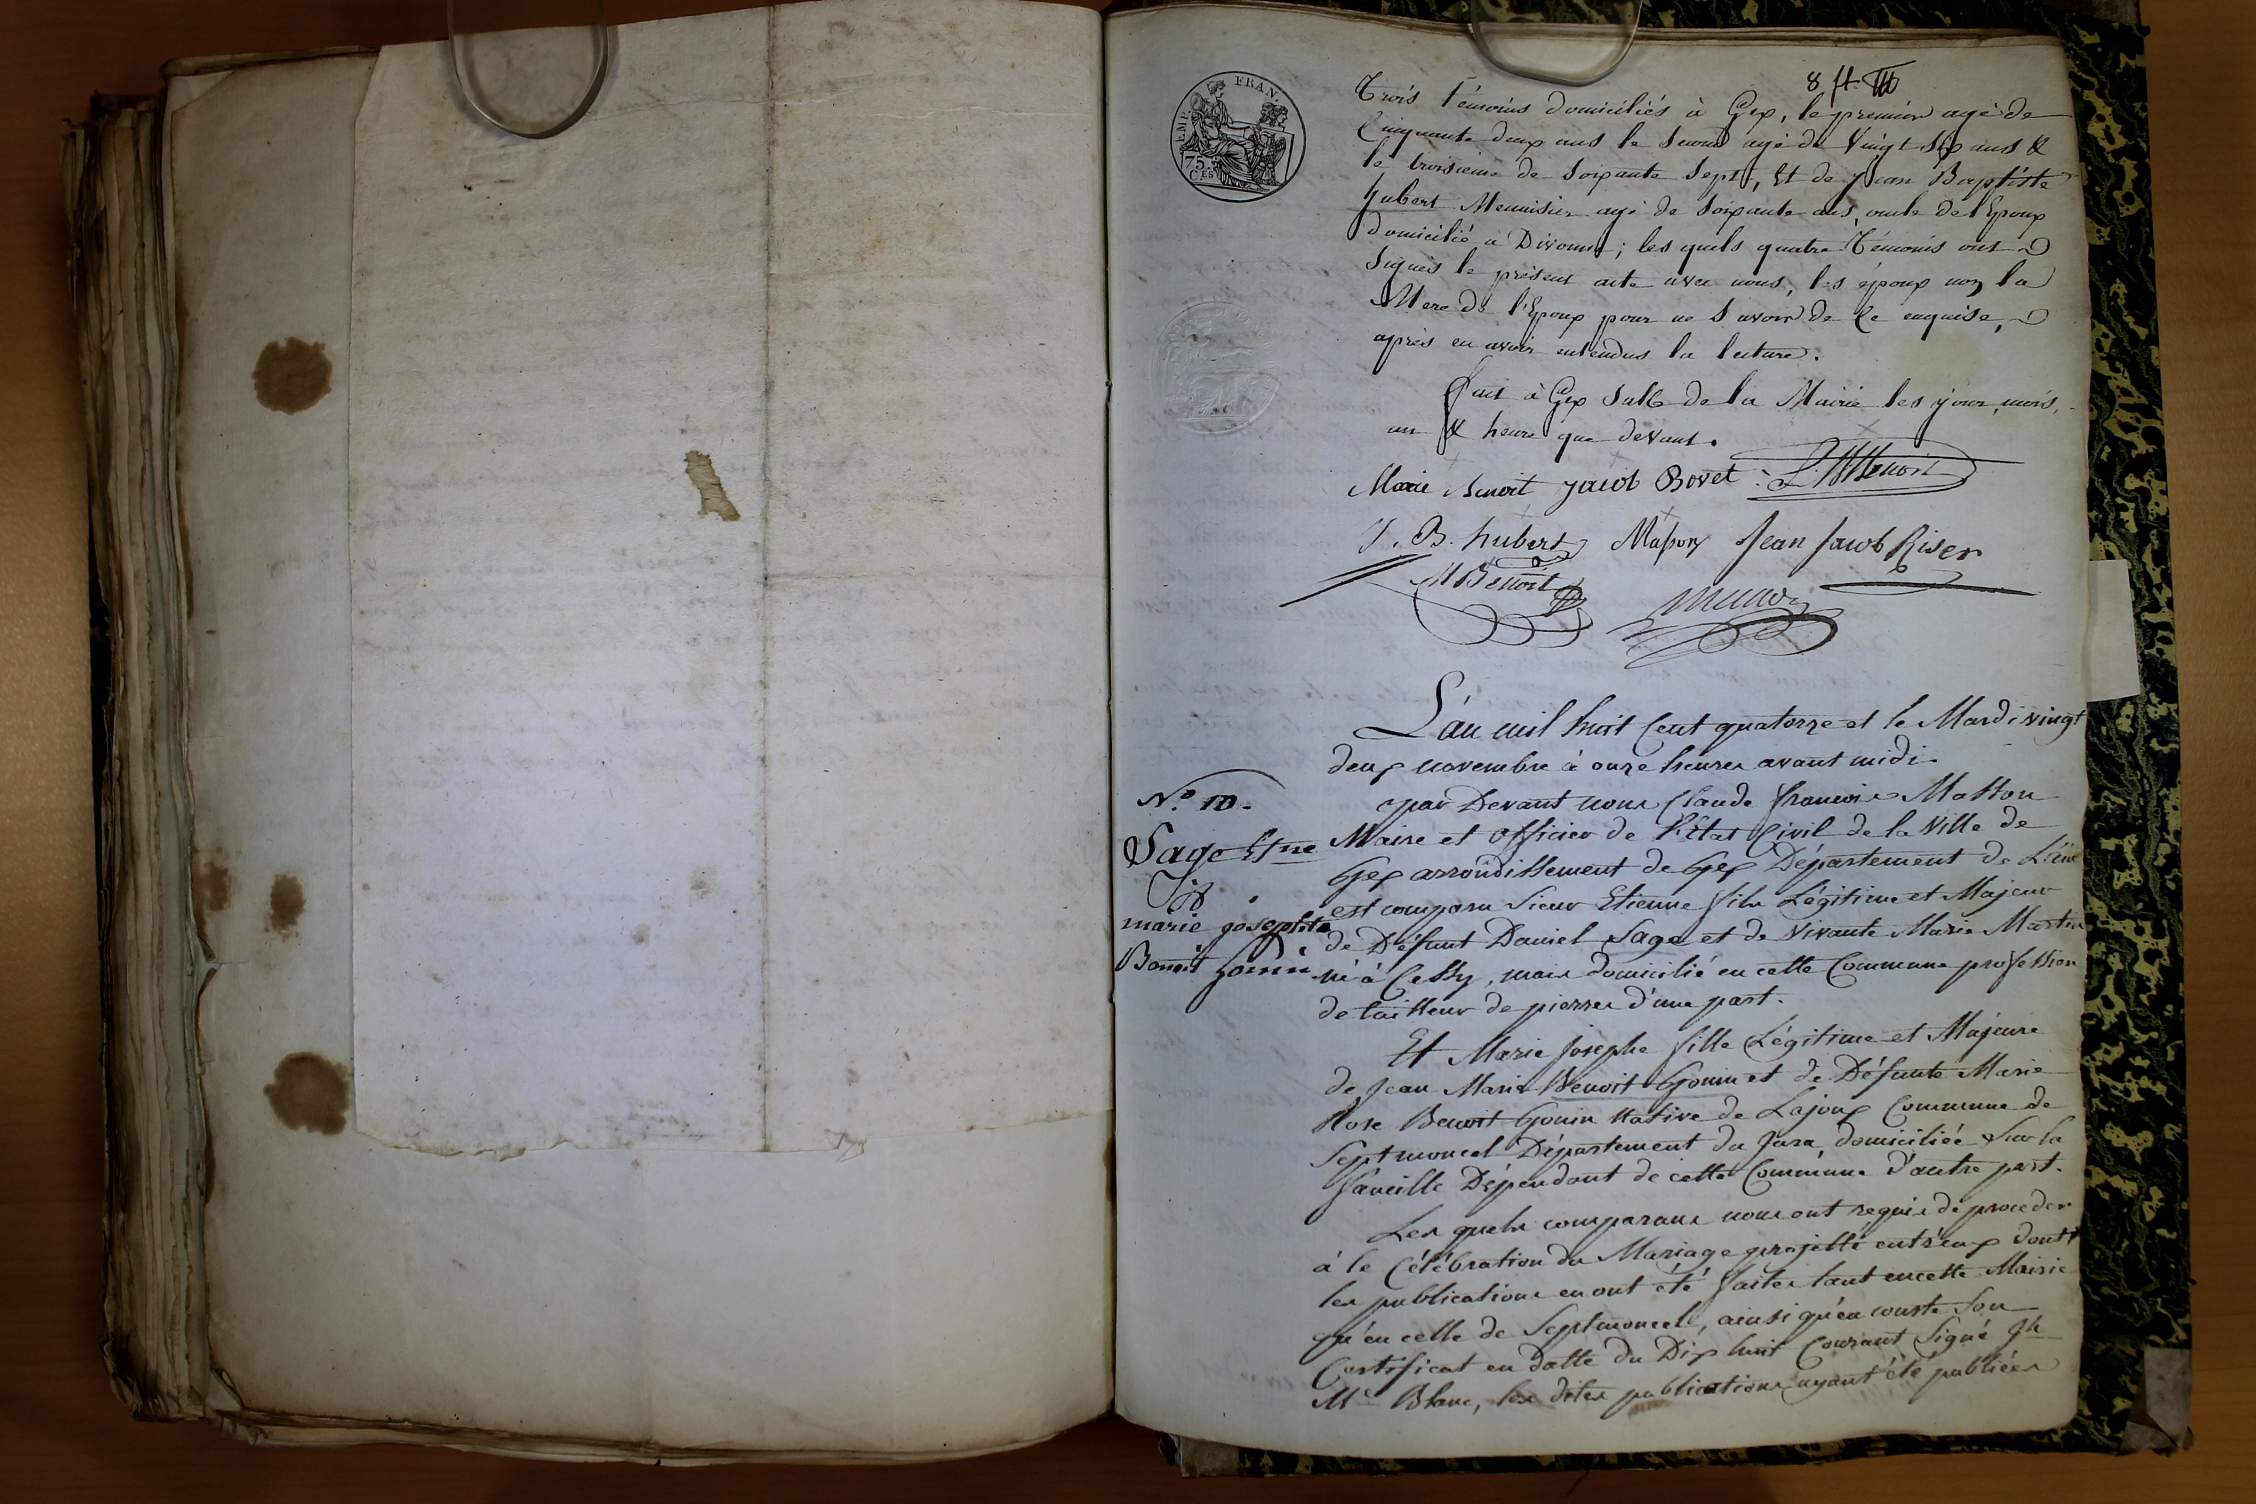 8 ft
EMP. FRAN.
75. CES
Trois témoins domiciliés à Gex, le premier agé de
Cinquante deux ans le second agé de Vingt six ans &
le troisieme de Soixante Sept, Et de Jean Baptiste
hubert Menuisier agé de Soixante ans, oncle de l'Epoux
domicilié à Divonne; les quels quatre Témoins ont
Signés le présent acte avec nous, les époux non la
Mere de l'Epoux pour ne Savoir de Ce enquise,
après en avoir entendus la lecture.
fait à Gex Salle de la Mairie les jour, mois,
an & heure que devant.
Marie Benoit Jacob Bovet Benoit
J. B. hubert Masson Jean Jacob Riser
M Benoit
L'an mil huit Cent quatorze et le Mardi vingt
deux novembre à onze heures avant midi.
par Devant nous Claude François Masson
Maire et Officier de l'Etat Civil de la Ville de
Gex arrondissement de Gex Département de L'ain
est comparu Sieur Etienne fils Légitime et Majeur
de Défunt Daniel Sage et de Vivante Marie Martin
né à Cessy, mais domicilié en cette Commune profession
de tailleur de pierres d'une part.
N.º 10.
Sage Etne
&
marie josephte
Benoit gonin
Et Marie Josephe fille Légitime et Majeure
de Jean Marie Benoit Gonin et de Défunte Marie
Rose Benoit Gonin Native de Lajoux Commune de
Septmoncel Département du Jura domiciliée Sur la
faucille Dépendant de cette Commune d'autre part.
Les quels comparans nous ont requis de proceder
à le Célébration du Mariage projetté entr'eux dont
les publications en ont été faites tant en cette Mairie
qu'en celle de Septmoncel, ainsi qu'en conste Son
Certificat en datte du Dix huit Courant Signé Jh
Mie Blanc, les dites publications ayant été publiées